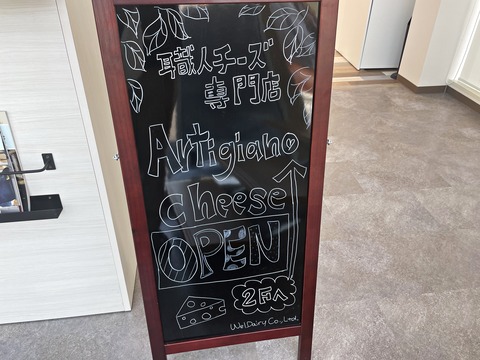 職人チーズ
専門店
Artigiano
cheese
OPEN
2Fへ
WelDairy Co., Ltd.